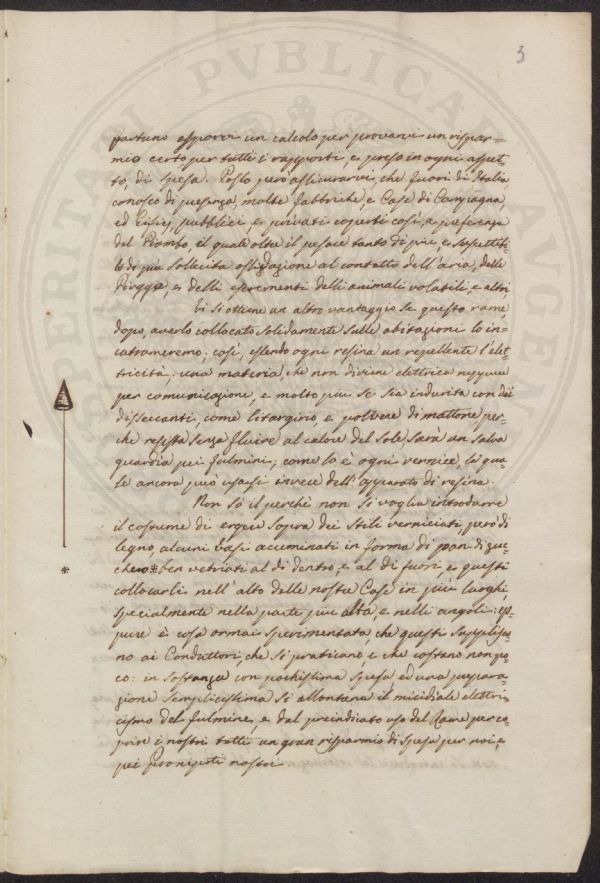 3
portuno esporvi un calcolo per provarvi un rispar=
mio certo per tutti i rapporti, e preso in ogni aspet=
to, di spesa. Posso però assicurarvi, che fuori di Italia
conosco di presenza, molte fabbriche, e Case di Campagna
ed Edifizj pubblici, e privati coperti così, a preferenza
del Piombo, il quale oltre il pesare tanto di più, è suscetti=
bile di più sollecita ossidazione al contatto dell'aria, delle
Piogge, e delli escrementi delli animali volatili, e altri,
Vi si ottiene un altro vantaggio se questo rame
dopo, averlo collocato solidamente sulle abitazioni lo in=
catrameremo; così, essendo ogni resina un repellente l'elet=
tricità; una materia, che non diviene elettrica neppure
per comunicazione, e molto più se sia indurita con dei
disseccanti, come litargirio, e polvere di mattone, per=
chè resista senza fluire al calore del Sole, sarà un salva
guardia pei fulmini; come lo è ogni vernice, la qua=
le ancora può usarsi invece dell'apparato di resina.
Non so il perchè non si voglia introdurre
il costume di ergere sopra dei stili verniciati, però di
legno, alcuni Vasi acuminati in forma di pan di zuc=
chero * ben vetriati al di dentro, e al di fuori, e questi
collocarli nell'alto delle nostre Case in più luoghi,
specialmente nella parte più alta, e nelli angoli: ep=
pure è cosa ormai sperimentata, che questi supplisco=
no ai Conduttori, che si praticano, e che costano non po=
co: in sostanza con pochissima spesa ed una prepara=
zione semplicissima si allontana il micidiale elettri=
cismo del fulmine, e dal preindicato uso del Rame per co=
prire i nostri tetti un gran risparmio di spesa per noi, e
pei Pronipoti nostri
*
VERITATI PVBLICAE AVGEN